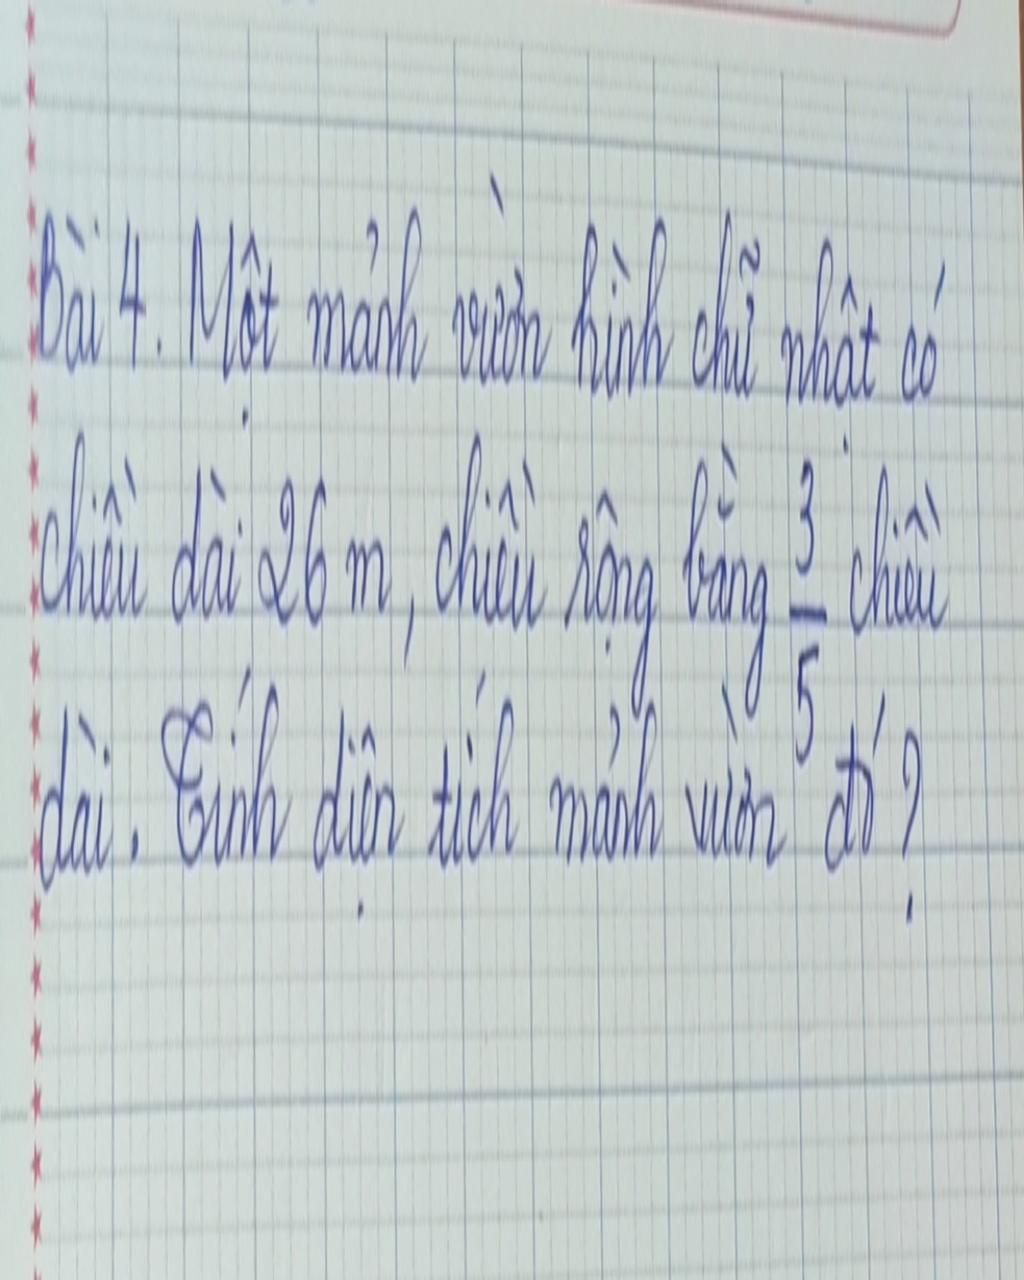 Bài 4. Một mảnh vườn hình chữ nhật có
chiều dài 26 m, chiều rộng bằng 3/5 chiều
dài. Tính diện tích mảnh vườn đó?